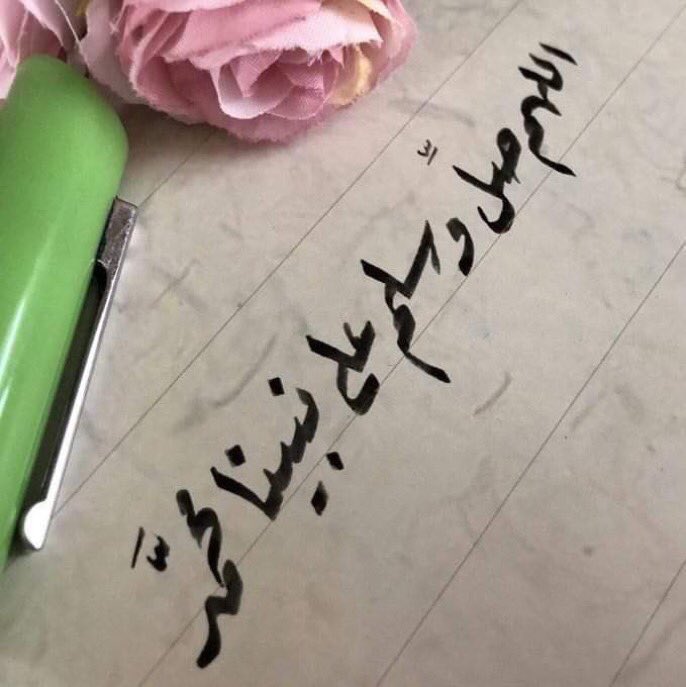 اللهم صل وسلم على نبينا محمّد